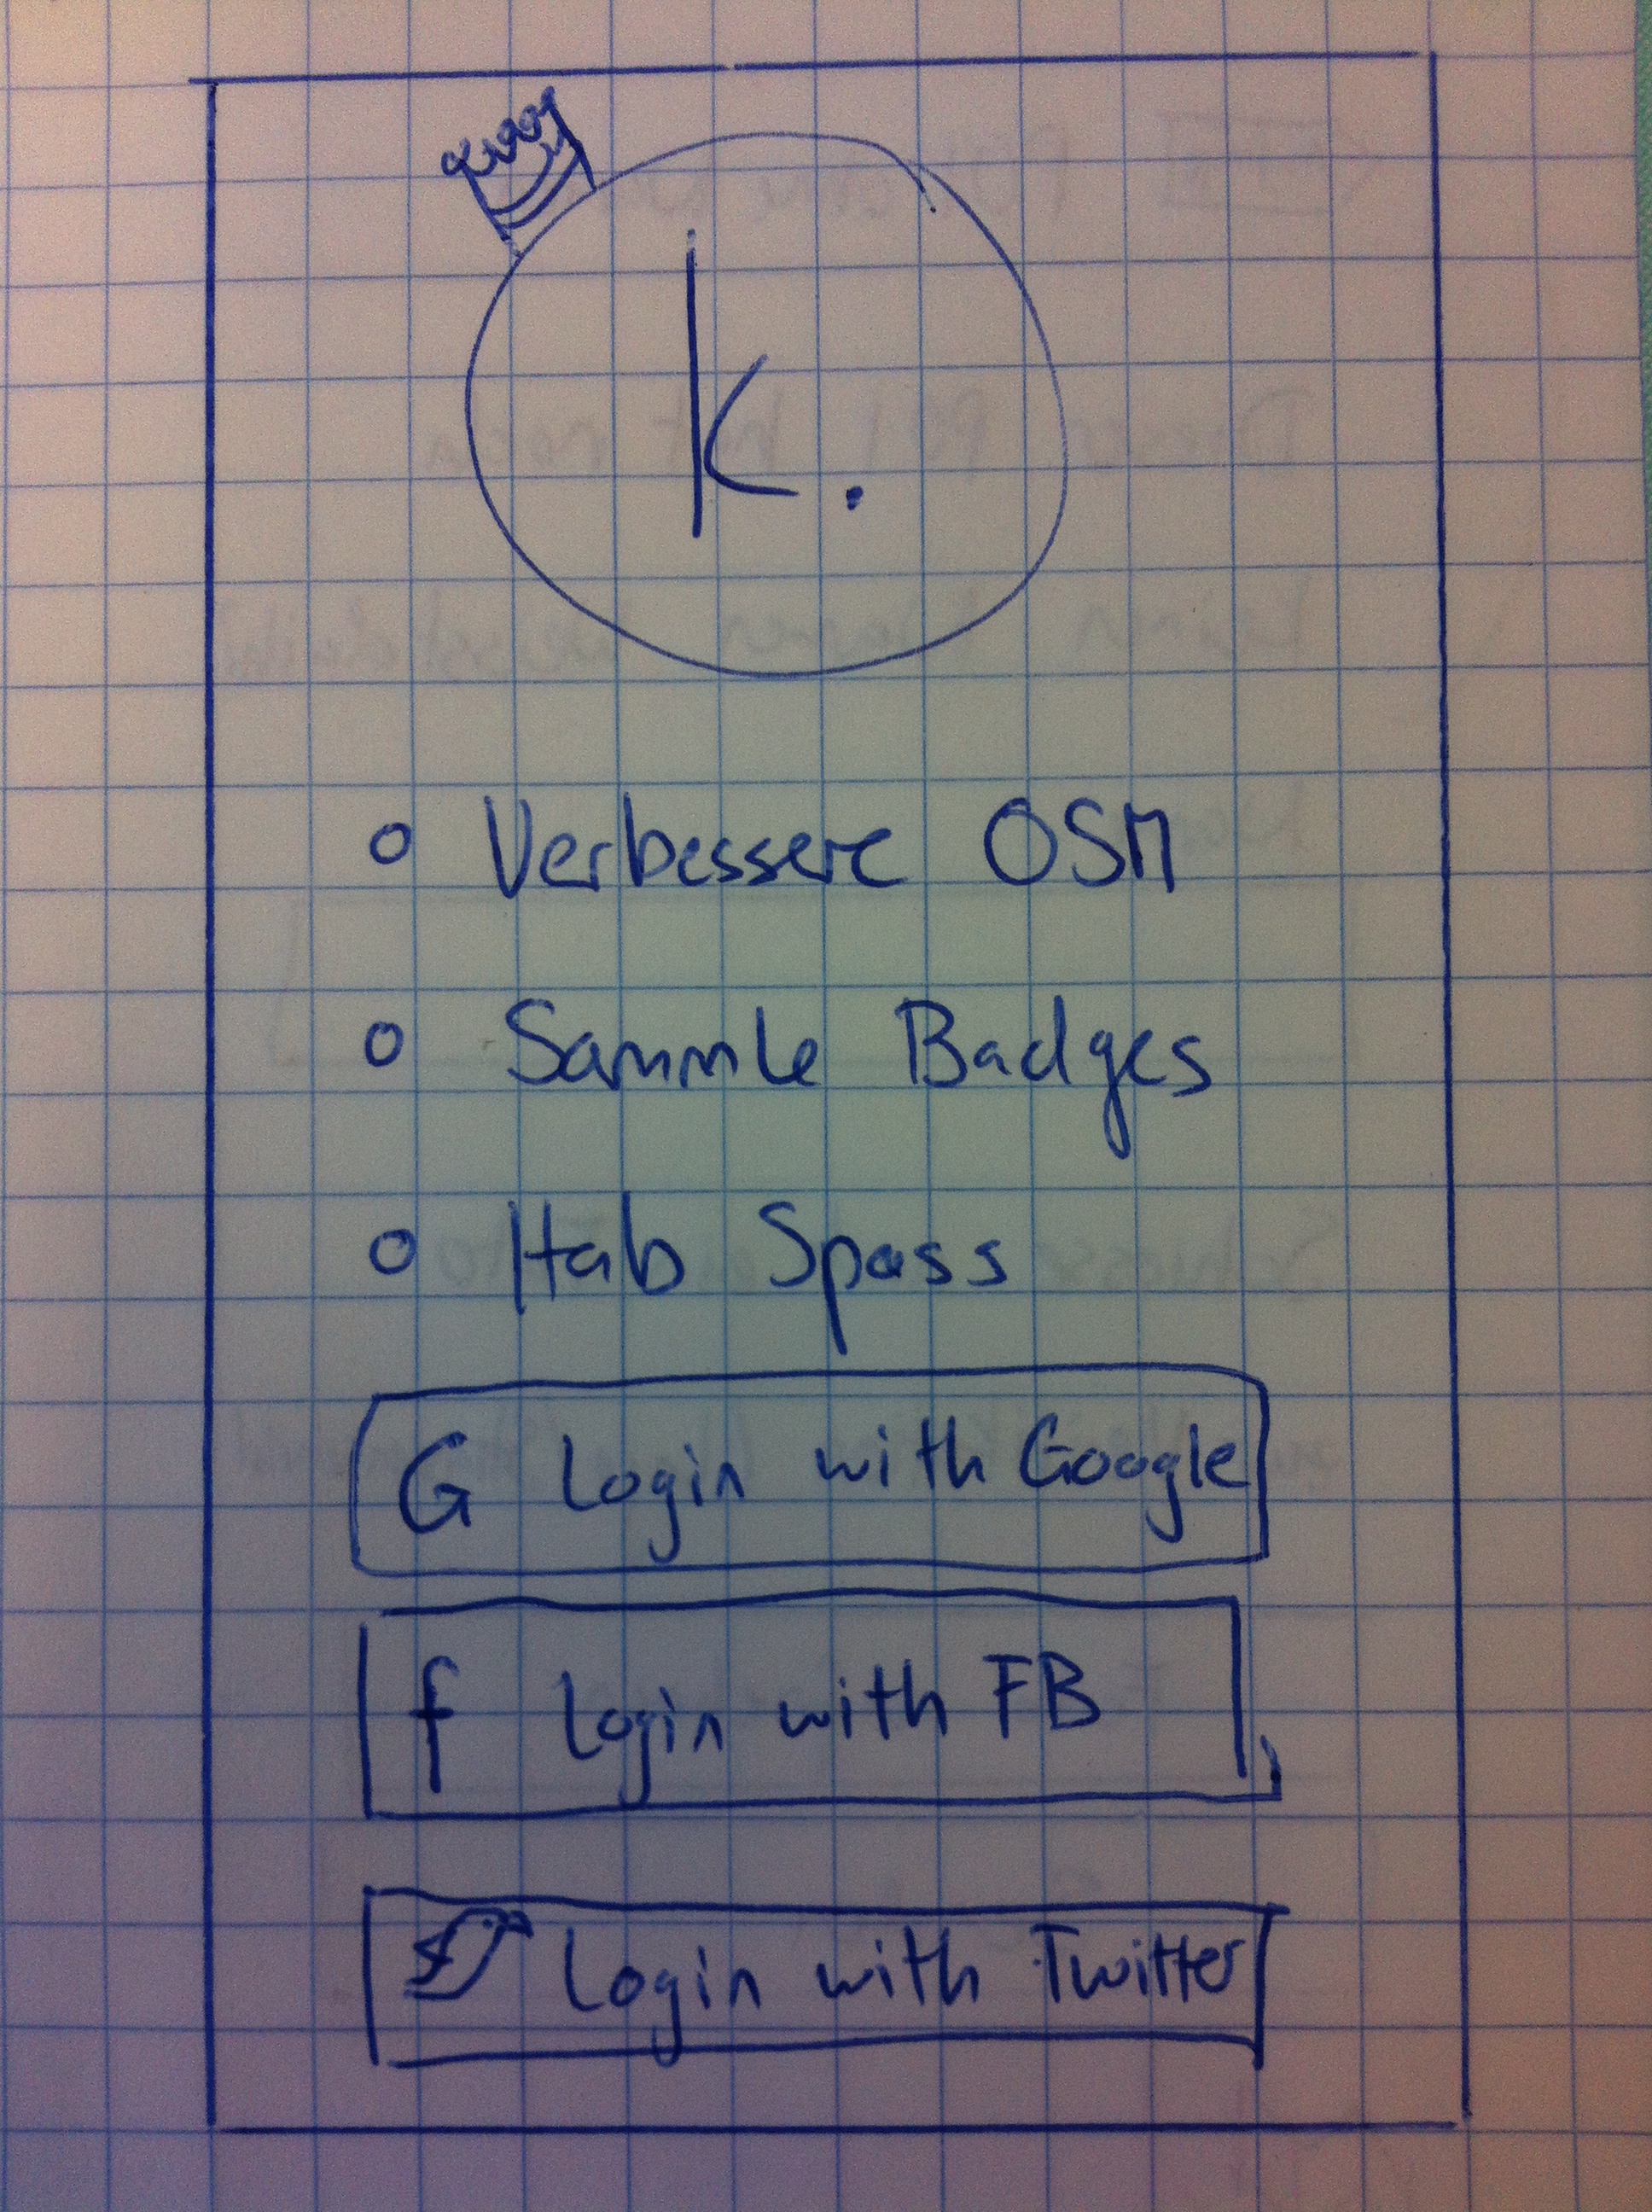 K.
Verbessere OSM
Sammle Badges
Hab Spass
G Login with Google
f Login with FB
Login with Twitter